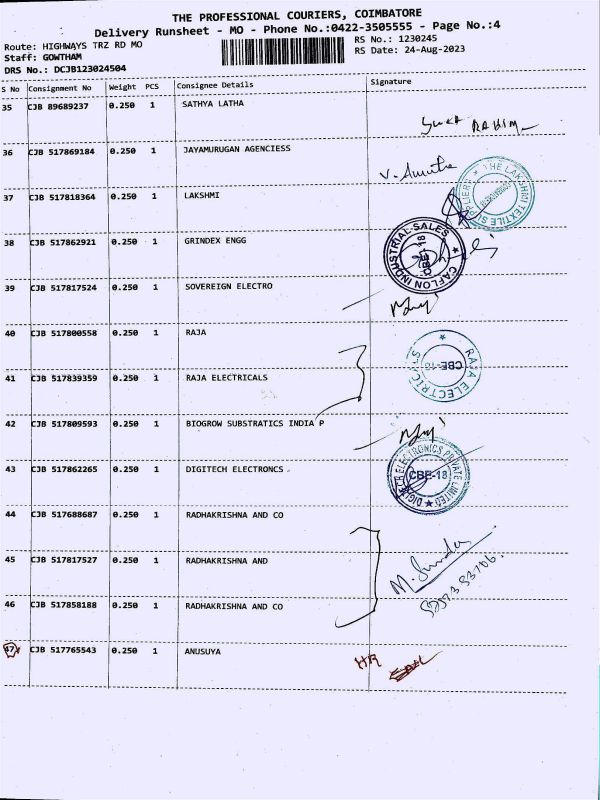 THE PROFESSIONAL COURIERS, COIMBATORE
Delivery Runsheet - MO - Phone No.:0422-3505555 - Page No.:4
Route: HIGHWAYS TRZ RD MO
RS No.: 1230245
Staff: GOWTHAM
RS Date: 24-Aug-2023
DRS No.: DCJB123024504
S No Consignment No Weight PCS Consignee Details Signature
35 CJB 89689237 0.250 1 SATHYA LATHA
36 CJB 517869184 0.250 1 JAYAMURUGAN AGENCIESS
37 CJB 517818364 0.250 1 LAKSHMI
THE LAKSHMI TEXTILE SUPPLIERS
38 CJB 517862921 0.250 1 GRINDEX ENGG
CAFLON INDUSTRIAL SALES
CBE-18
39 CJB 517817524 0.250 1 SOVEREIGN ELECTRO
40 CJB 517800558 0.250 1 RAJA
RAJA ELECTRICALS
CBE-18
41 CJB 517839359 0.250 1 RAJA ELECTRICALS
42 CJB 517809593 0.250 1 BIOGROW SUBSTRATICS INDIA P
43 CJB 517862265 0.250 1 DIGITECH ELECTRONCS
DIGITECH ELECTRONICS PRIVATE LIMITED
CBE-18
44 CJB 517688687 0.250 1 RADHAKRISHNA AND CO
45 CJB 517817527 0.250 1 RADHAKRISHNA AND
46 CJB 517858188 0.250 1 RADHAKRISHNA AND CO
47 CJB 517765543 0.250 1 ANUSUYA